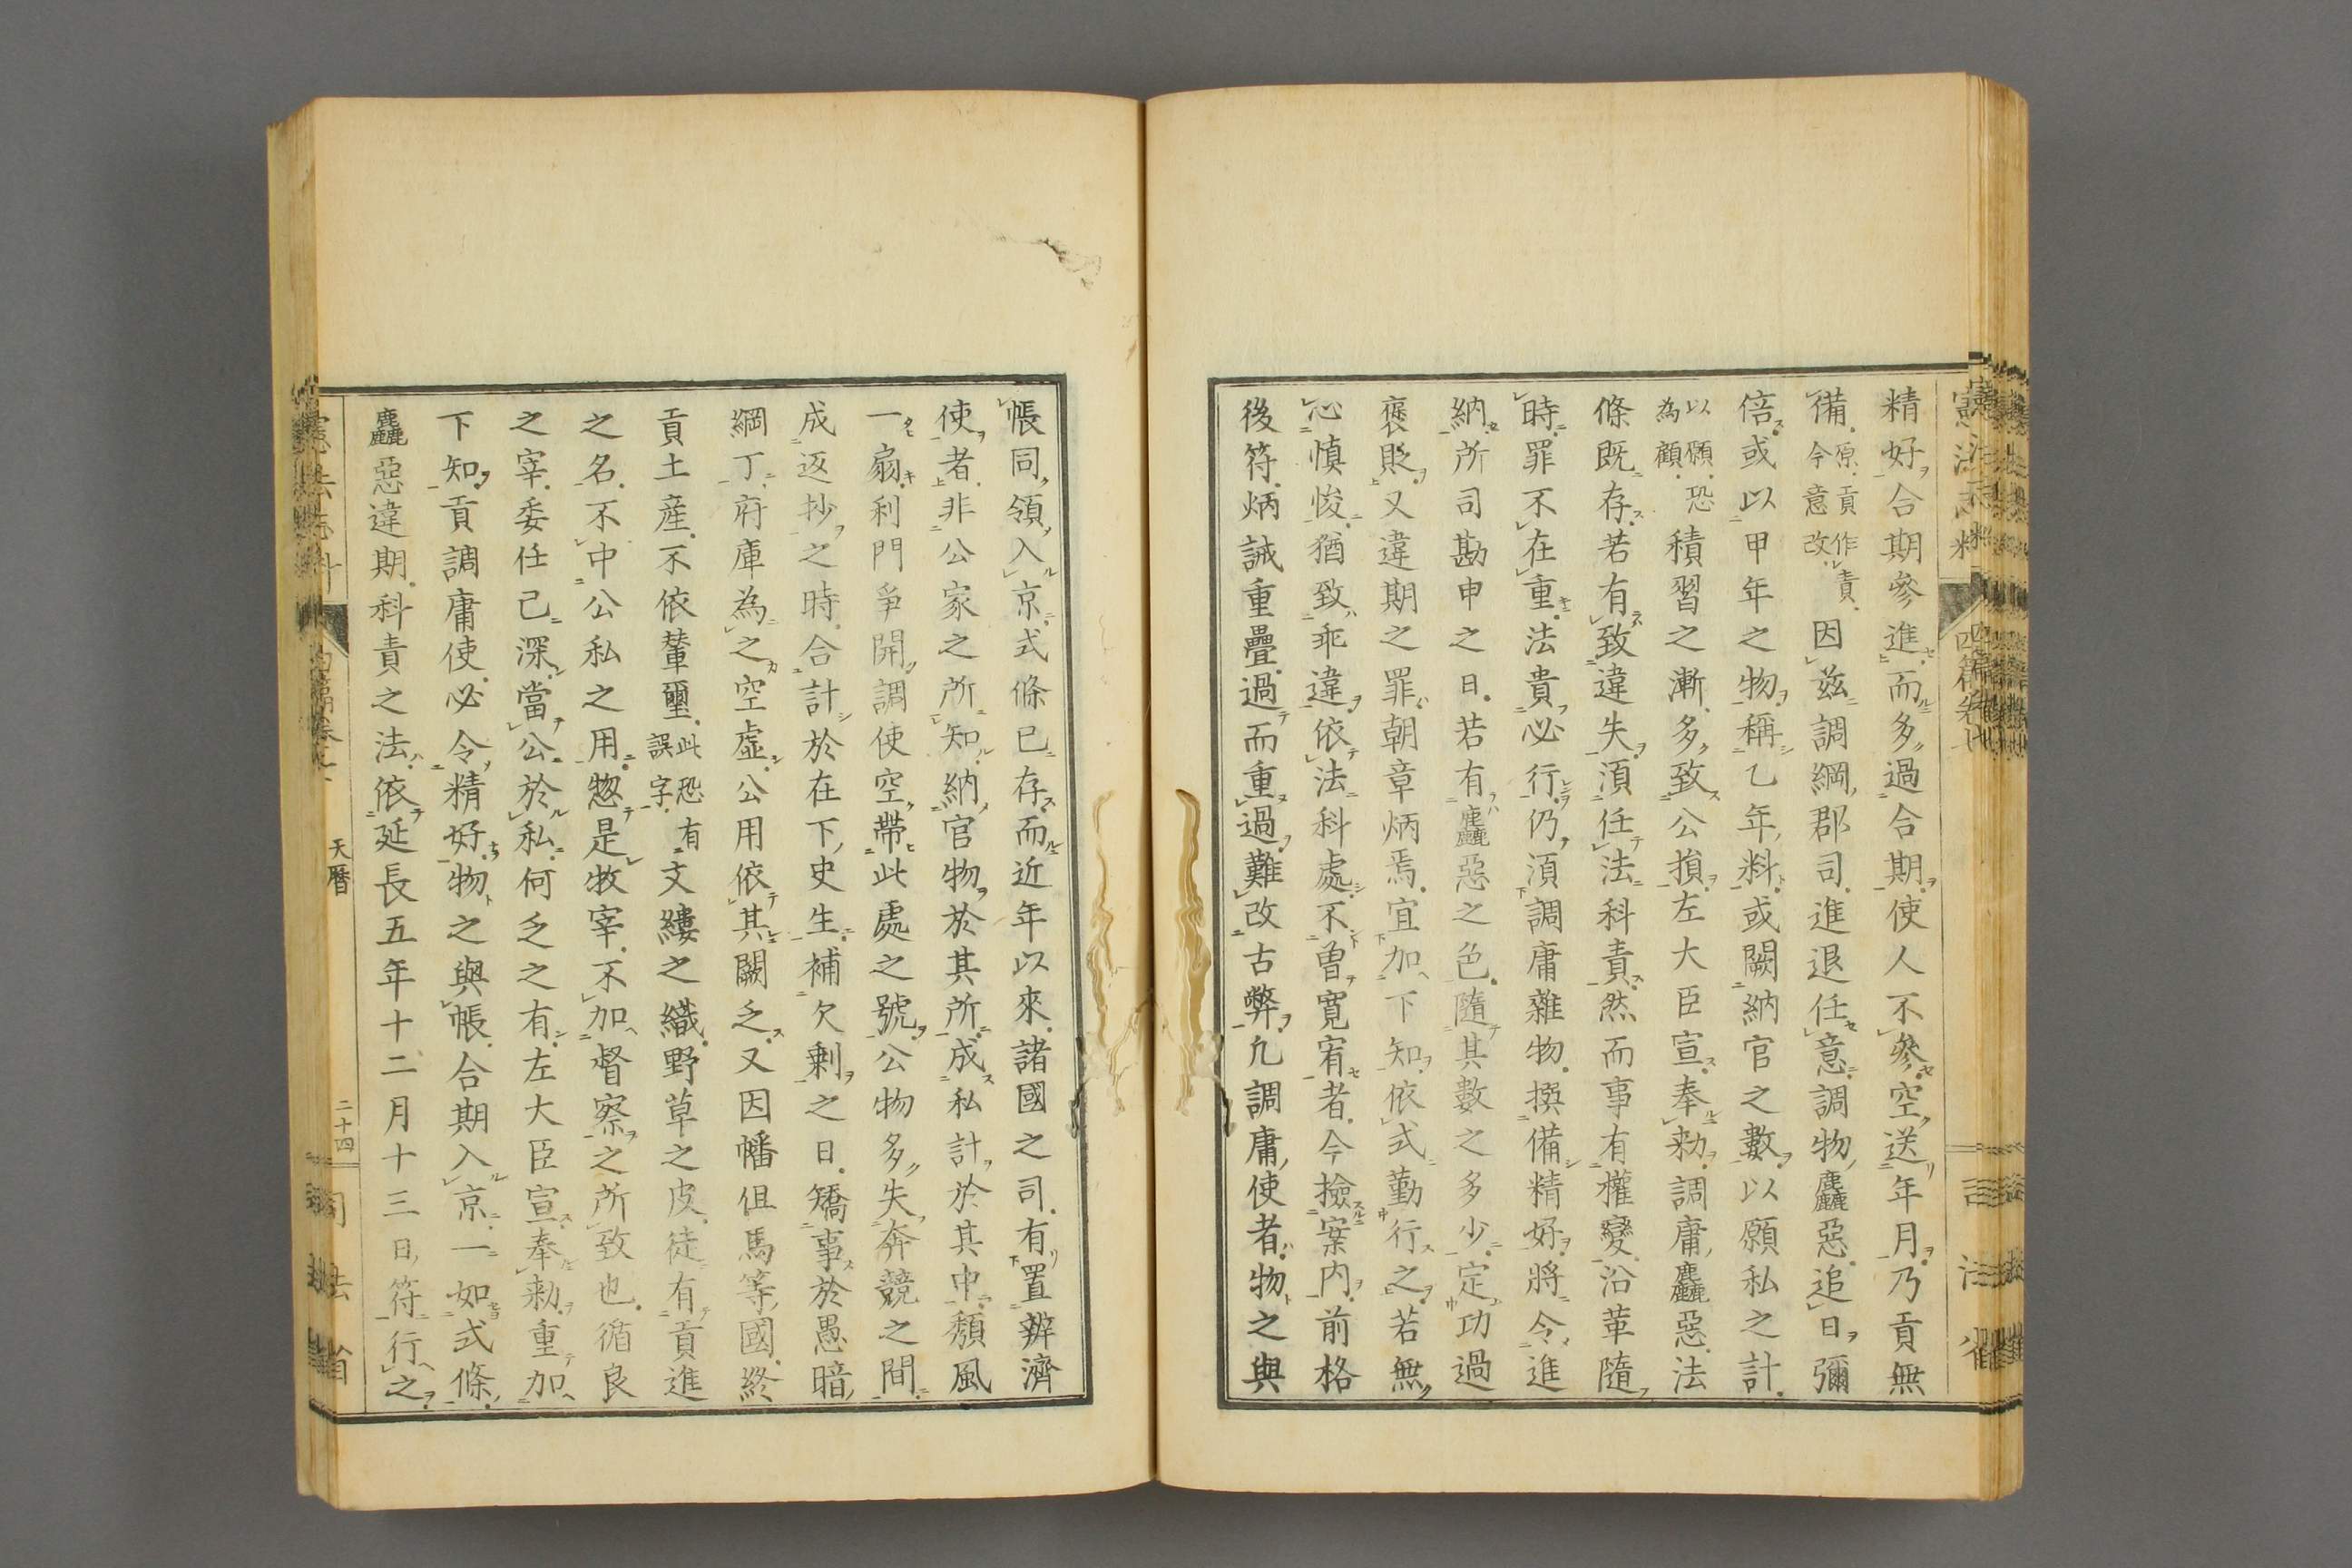 精好合期參進而多過合期使人不參空送年月乃貢無
備原貢作責今意改因茲調綱郡司進退任意調物麤惡追日彌
倍或以甲年之物稱乙年料或闕納官之數以願私之計
以願恐為顧積習之漸多致公損左大臣宣奉勅調庸麤惡法
條既存若有致違失湏任法科責然而事有權變沿革隨
時罪不在重法貴必行仍湏調庸雜物撰備精好將令進
納所司勘申之日若有麤惡之色隨其數之多少定功過
褒貶又違期之罪朝章炳焉宜加下知依式勤行之若無
心慎悛猶致乖違依法科處不曾寛宥者今撿案內前格
後符炳誡重疊過而重過難改古弊凢調庸使者物之與
帳同領入京式條已存而近年以來諸國之司有置辨濟
使者非公家之所知納官物於其所成私計於其中頽風
一扇利門爭開調使空帶此處之號公物多失奔競之間
成返抄之時合計於在下史生補欠剩之日矯事於愚暗
綱丁府庫為之空虛公用依其闕乏又因幡但馬等國終
貢土産不依輦璽此恐誤字有文縷之織野草之皮徒有貢進
之名不中公私之用惣是牧宰不加督察之所致也循良
之宰委任己深當公於私何乏之有左大臣宣奉勅重加
下知貢調庸使必令精好物之與帳合期入京一如式條
麤惡違期科責之法依延長五年十二月十三日符行之
天曆
二十四
司法省